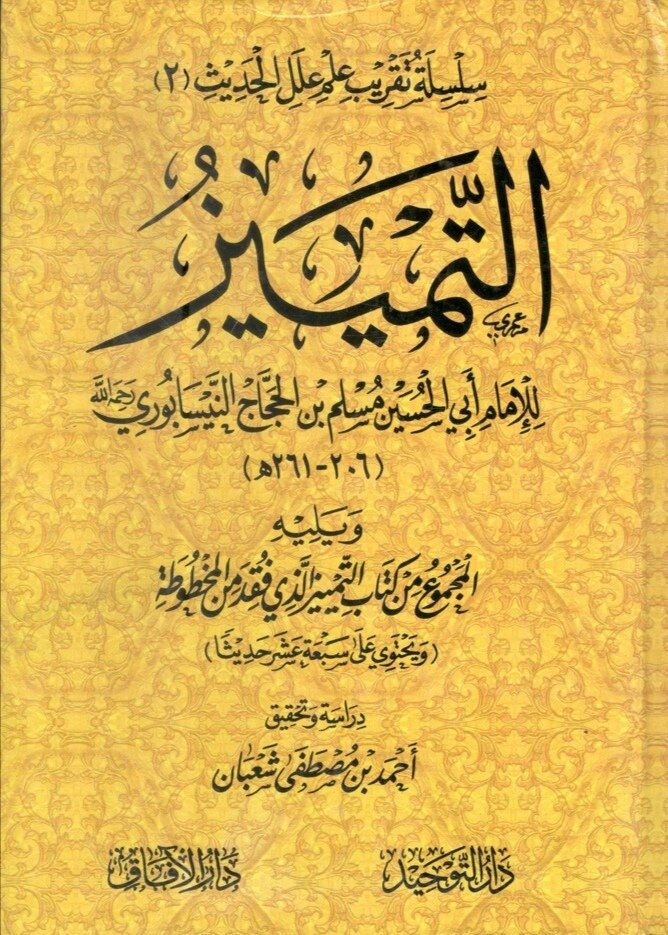 سِلْسِلَةُ تَقْرِيبِ عِلْمِ عِلَلِ الْحَدِيثِ (٢)
التَّمْيِيزُ
لِلْإِمَامِ أَبِي الْحُسَيْنِ مُسْلِمِ بْنِ الْحَجَّاجِ النَّيْسَابُورِيِّ رَحِمَهُ اللَّهُ
(٢٠٦-٢٦١هـ)
وَيَلِيْهِ
الْمَجْمُوعُ مِنْ كِتَابِ التَّمْيِيزِ الَّذِي فُقِدَ مِنَ الْمَخْطُوطَةِ
(وَيَحْتَوِي عَلَى سَبْعَةَ عَشَرَ حَدِيثًا)
دِرَاسَة وَتَحْقِيق
أَحْمَد بْن مُصْطَفَى شَعْبَان
دَارُ التَّوْحِيدِ
دَارُ الْآفَاقِ